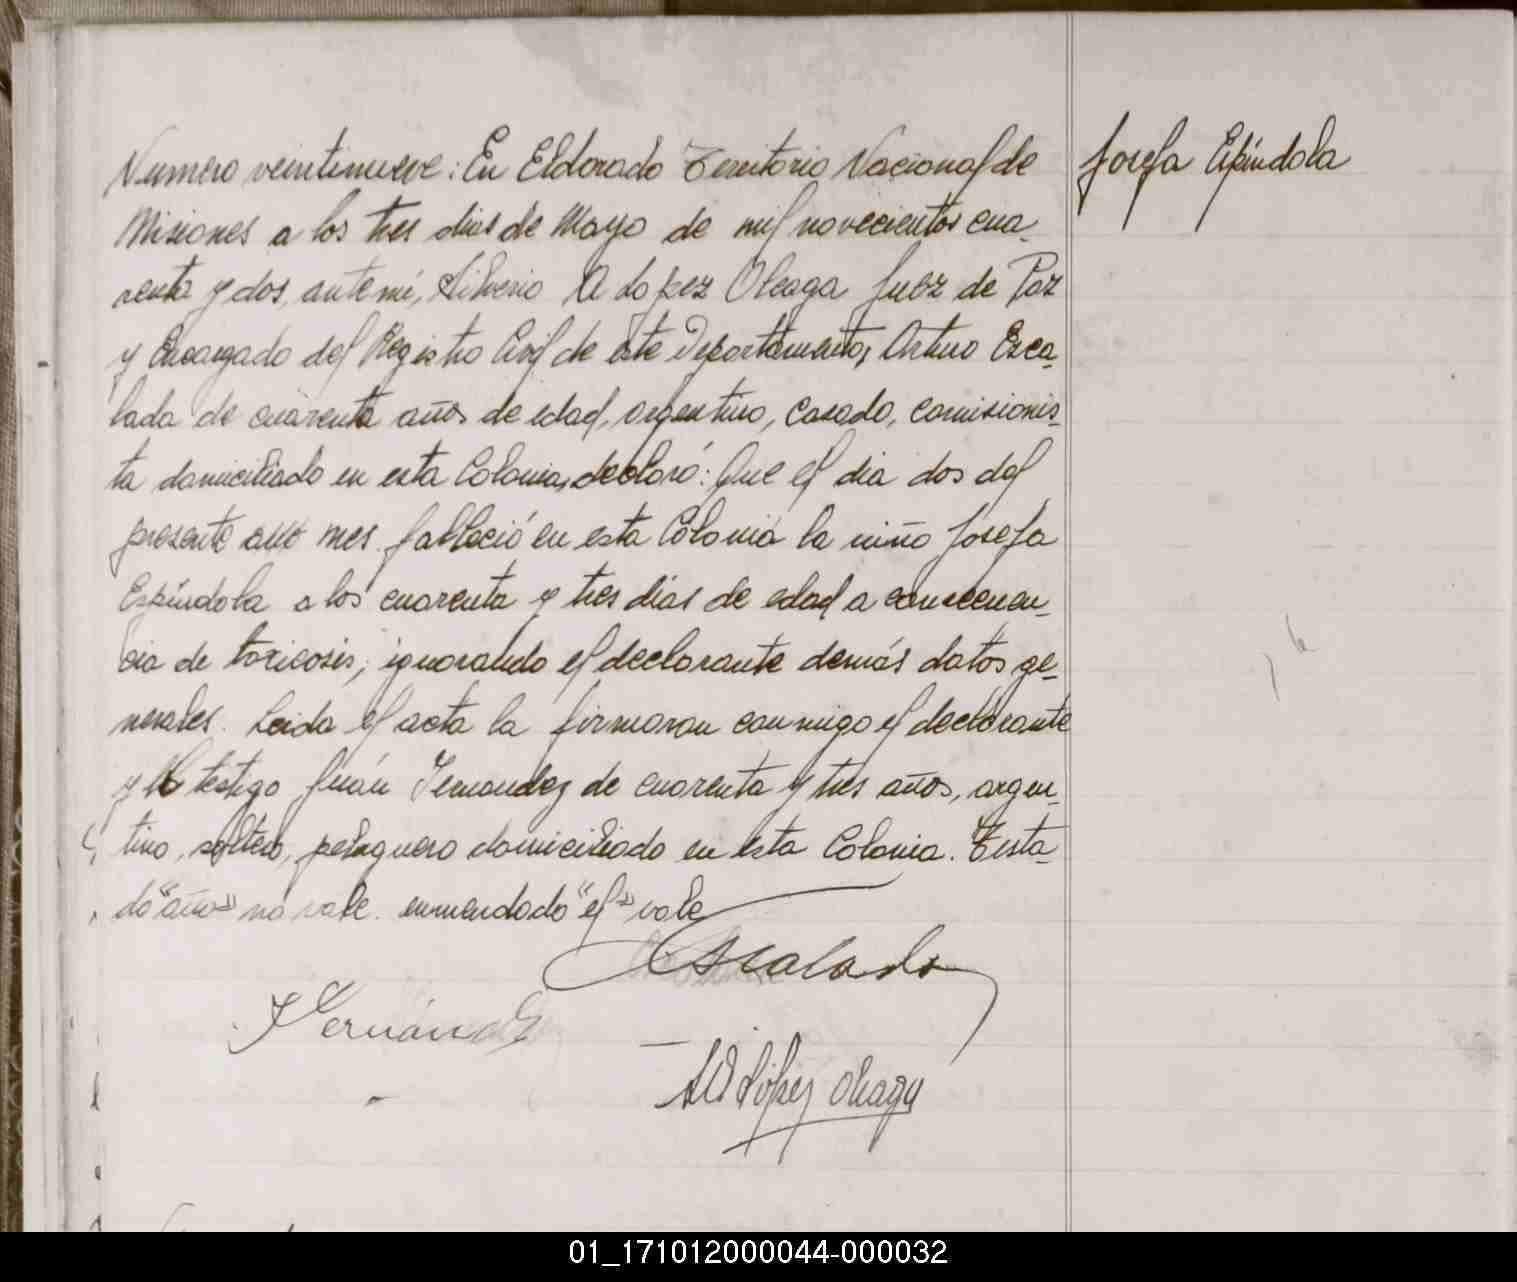 Numero veintinueve: En Eldorado Territorio Nacional de
Misiones a los tres dias de Mayo de mil novecientos cua-
renta y dos, ante mi, Silverio A Lopez Oleaga Juez de Paz
y Encargado del Registro Civil de este Departamento, Arturo Esca-
lada de cuarenta años de edad, argentino, casado, comisionis-
ta domiciliado en esta Colonia, declaró: Que el dia dos del
presente año mes falleció en esta Colonia la niña Josefa
Espíndola a los cuarenta y tres dias de edad a consecuen-
cia de toxicosis, ignorando el declarante demás datos ge-
nerales. Leida el acta la firmaron conmigo el declarante
y el testigo Juán Fernandez de cuarenta y tres años, argen-
tino, soltero, peluquero domiciliado en esta Colonia. Testa-
do "año" no vale. enmendado "el" vale
Escalada
Fernández
S A López Oleaga
Josefa Espíndola
01_171012000044-000032